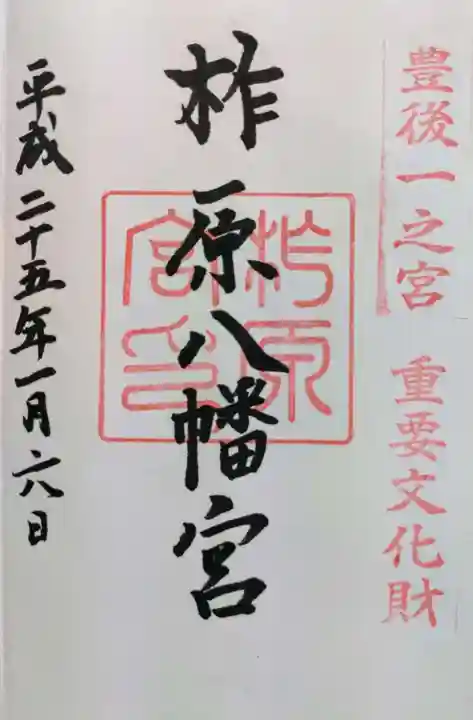 豊後一之宮　重要文化財
柞原八幡宮
柞原宮印
平成二十五年一月六日